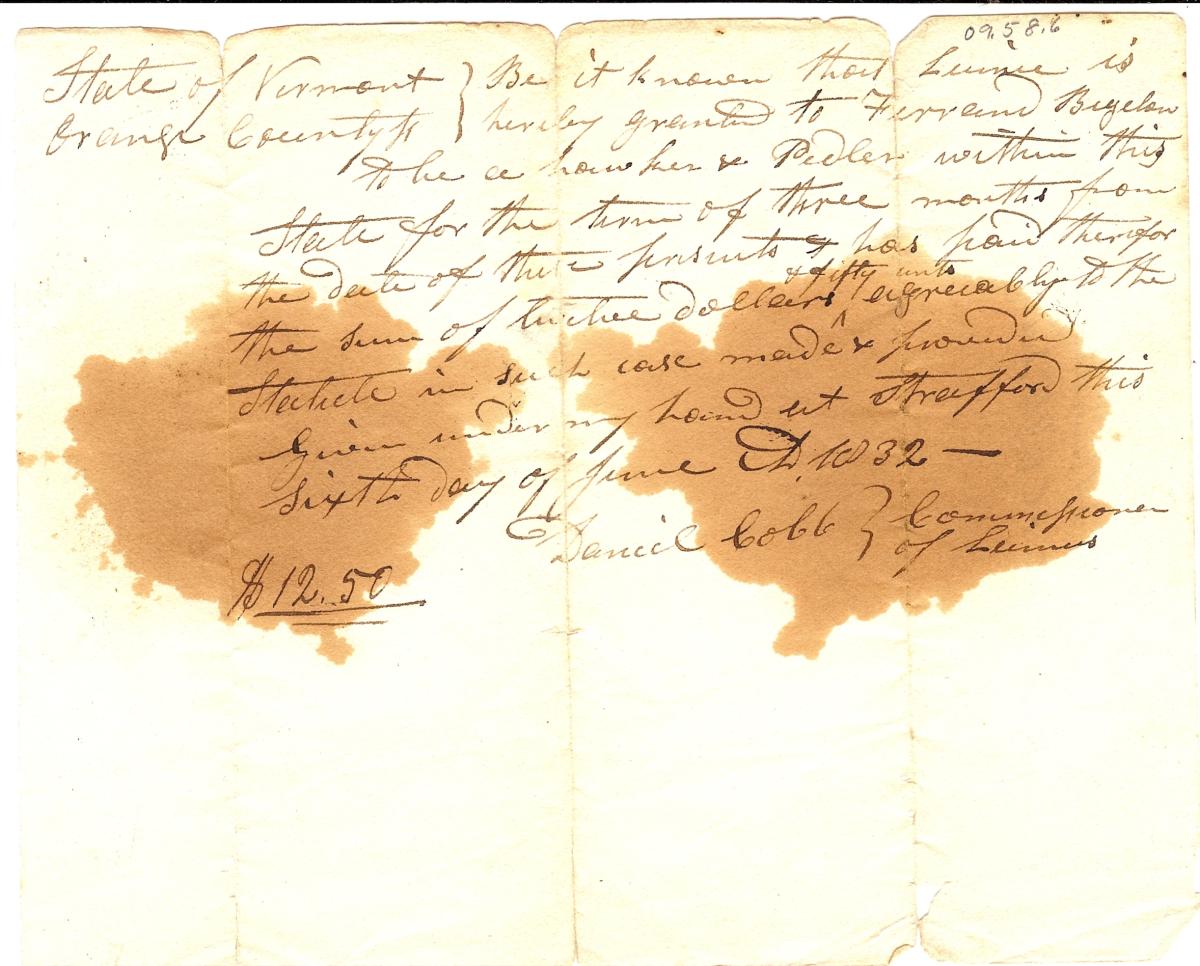 09.5 8.6
State of Vermont } Be it known that Lisence is
Orange County ss } hereby granted to Ferrand Bigelow
to be a hawker & Pedler within this
State for the term of three months from
the date of these presents & has paid therefor
& fifty cents
the sum of twelve dollars ^ agreeably to the
Statute in such case made & provided
Given under my hand at Strafford this
sixth day of June AD, 1832 —
Daniel Cobb } Commissioner
of Lisences
$12.50